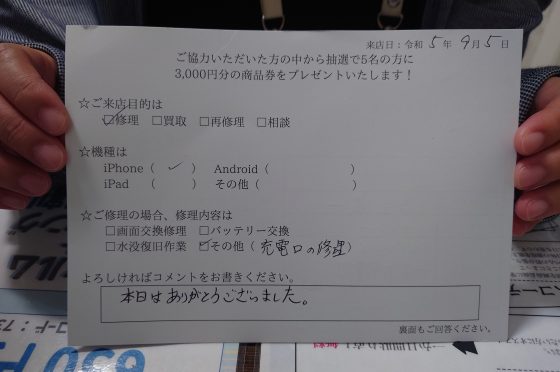 来店日：令和 5 年 9 月 5 日
ご協力いただいた方の中から抽選で5名の方に
3,000円分の商品券をプレゼントいたします！
☆ご来店目的は
☑修理 □買取 □再修理 □相談
☆機種は
iPhone（ ✓ ） Android（ ）
iPad （ ） その他（ ）
☆ご修理の場合、修理内容は
□画面交換修理 □バッテリー交換
□水没復旧作業 ☑その他（充電口の修理）
よろしければコメントをお書きください。
本日はありがとうございました。
裏面もご回答ください。